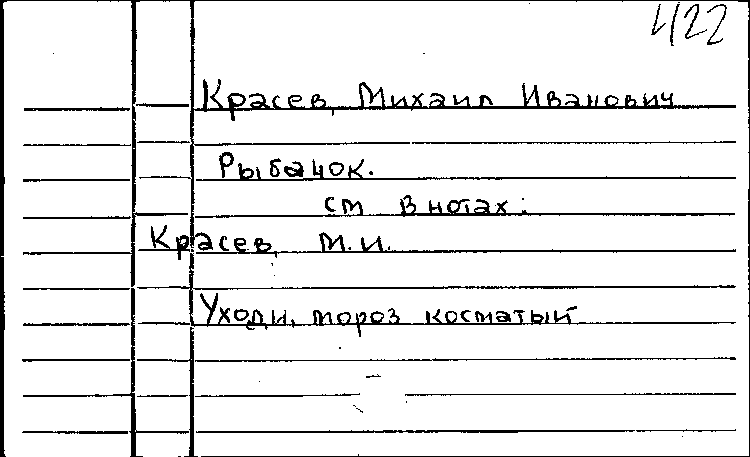 422
Красев, Михаил Иванович
Рыбачок.
см в нотах:
Красев, М.И.
Уходи, мороз косматый